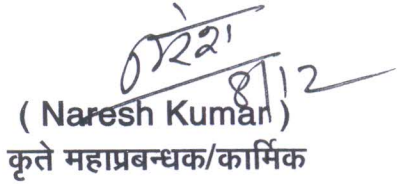 नरेश
8/12
( Naresh Kumar )
कृते महाप्रबन्धक/कार्मिक